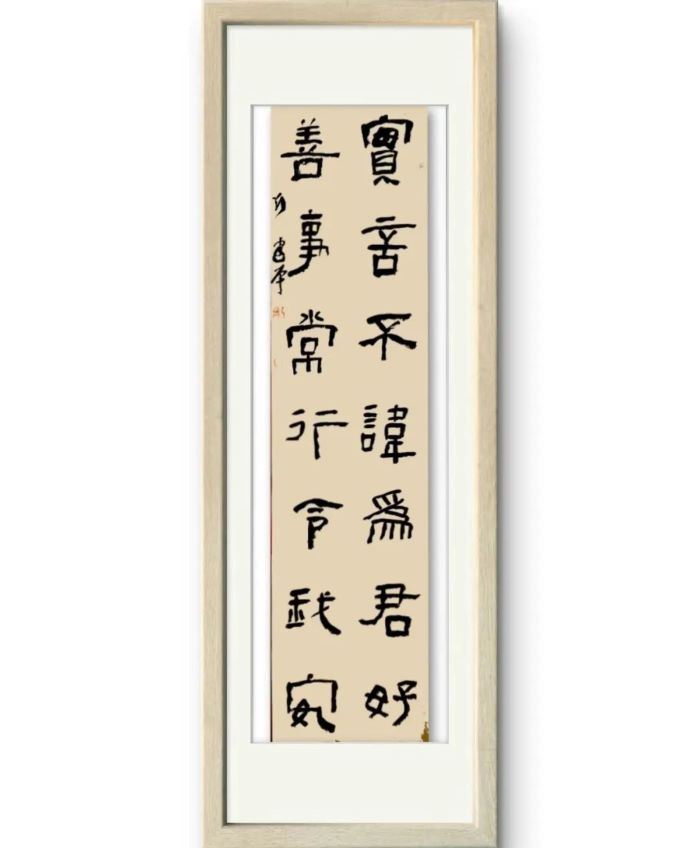 實言不諱爲君好
善事常行令我安